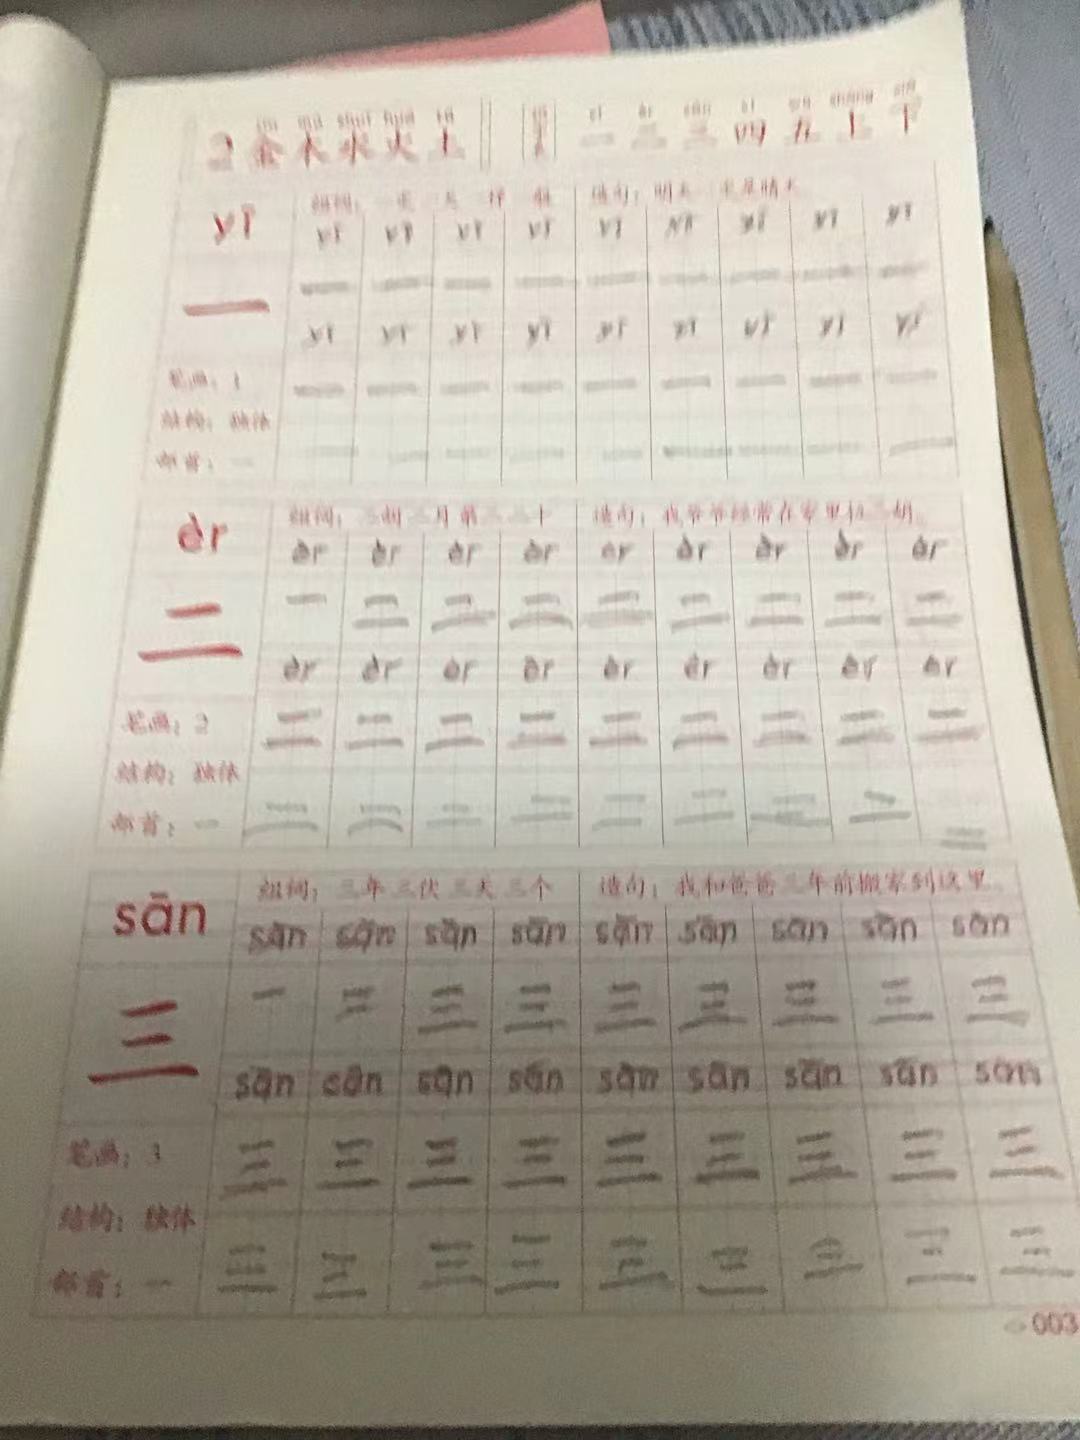 2 金木水火土 一 二 三 四 五 上 下
yī 组词： 造句：明天一定是晴天
yī yī yī yī yī yī yī yī yī
一 一 一 一 一 一 一 一 一 一
yī yī yī yī yī yī yī yī yī
笔画：1 一 一 一 一 一 一 一 一 一
结构：独体
部首：一 一 一 一 一 一 一 一 一 一
èr 组词：二胡 二月 第二 二十 造句：我爷爷经常在家里拉二胡。
èr èr èr èr èr èr èr èr èr
二 一 二 二 二 二 二 二 二 二
èr èr èr èr èr èr èr èr èr
笔画：2 二 二 二 二 二 二 二 二 二
结构：独体
部首：一 二 二 二 二 二 二 二 二 二
sān 组词：三年 三伏 三天 三个 造句：我和爸爸三年前搬家到这里。
sān sān sān sān sān sān sān sān sān
三 一 三 三 三 三 三 三 三 三
sān sān sān sān sān sān sān sān sān
笔画：3 三 三 三 三 三 三 三 三 三
结构：独体
部首：一 三 三 三 三 三 三 三 三 三
003